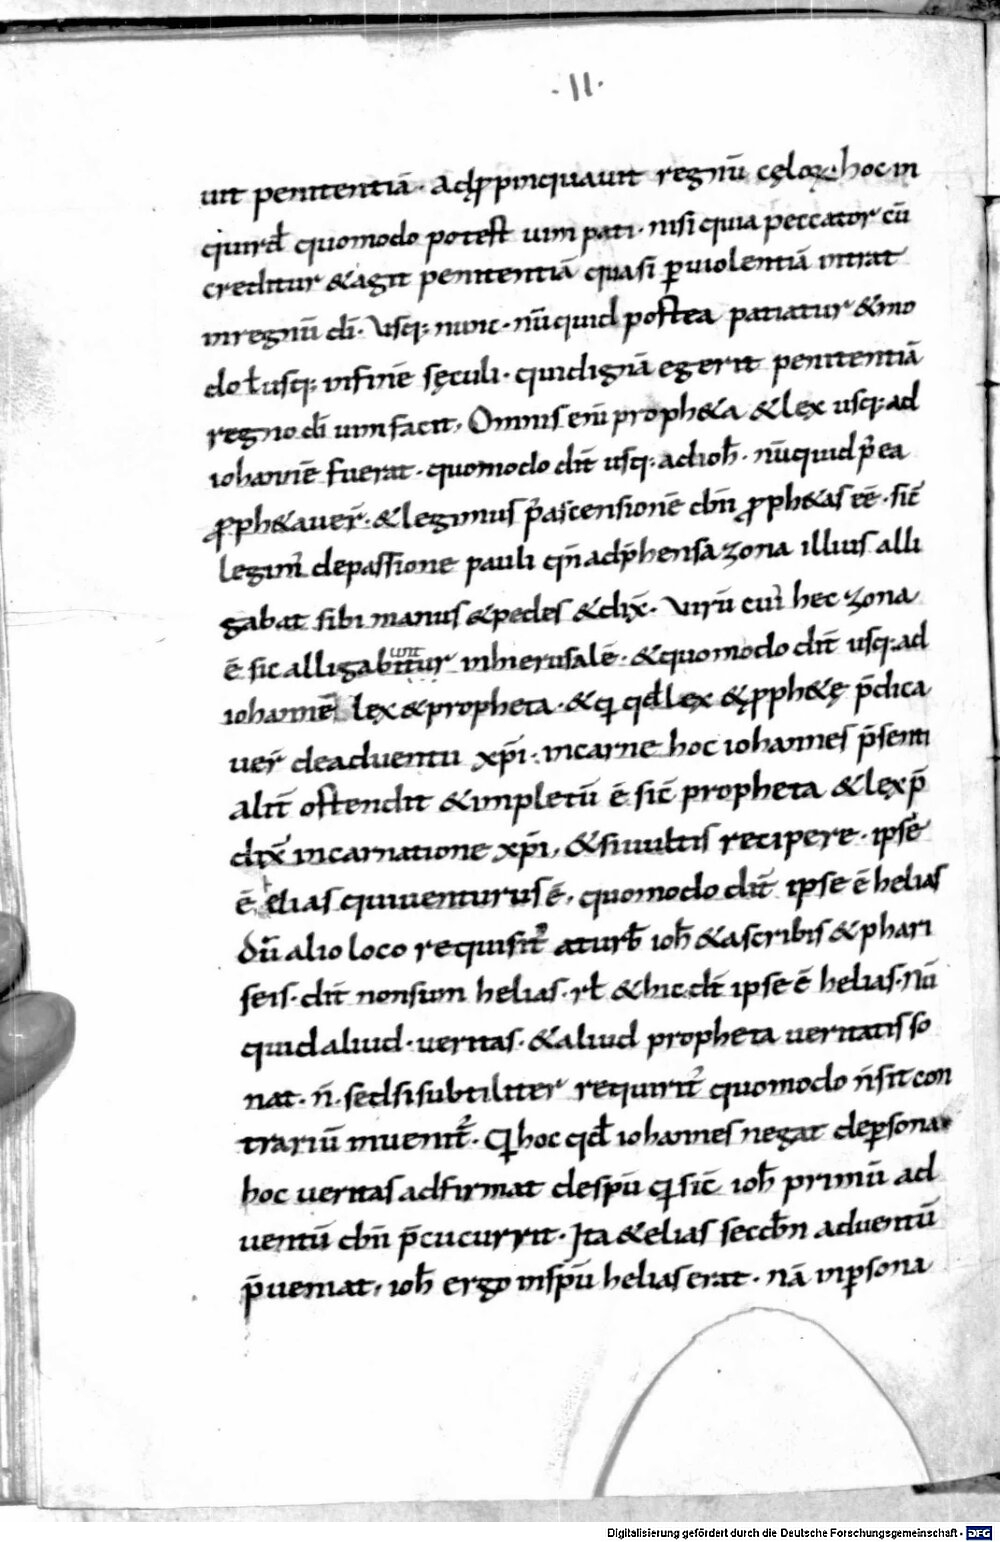 ·II·
uit penitentiā· Adꝓpinquauit regnū cęloꝝ· hoc in
quird̄ quomodo potest uim pati· nisi quia peccator cū
creditur & agit penitentiā quasi ꝑ uiolentiā intrat
in regnū dī· Usq; nunc· nūquid postea patiatur & mo
do ƚ usq; in finē sęculi· qui dignā egerit penitentiā
regno dī uim facit, Omnis enī proph&a & lex usq; ad
iohannē fuerat· quomodo dīt usq; ad ioħ· nūquid p̄ ea
ꝓph&auer̄· & legimus p̄ ascensionē dn̄i ꝓph&as eē· sic̄
legim̄ de passione pauli qn̄ adp̄hensa zona illius alli
gabat sibi manus & pedes & dix̄· Uirū cui hec zona
ē sic alligabitur in hierusalē· & quomodo dīt usq; ad
unt
iohannē lex & propheta· & q qd̄ lex & ꝓph&ę p̄dica
uer̄ de aduentu xp̄i· in carne hoc iohannes p̄senti
alit̄ ostendit & impletū ē sic̄ propheta & lex p̄
dix̄ incarnatione xp̄i, & si uultis recipere· ipse
ē elias qui uenturus ē, quomodo dīt ipse ē helias
Dū alio loco requisit̄ aturb̄ ioħ & a scribis & phari
seis· dīt non sum helias· rƚ & hic dīt ipse ē helias· Nū
quid aliud· ueritas· & aliud propheta ueritatis so
nat· n̄· sed si subtiliter requirit̄ quomodo n̄ sit con
trariū inuenit̄· Q hoc qd̄ iohannes negat de ꝑsona
hoc ueritas adfirmat de sp̄u q sic̄ ioħ primū ad
uentū dn̄i p̄cucurrit· Ita & elias secdn̄ aduentū
p̄ueniat, ioħ ergo in sp̄u helias erat· nā in ꝑsona
Digitalisierung gefördert durch die Deutsche Forschungsgemeinschaft - DFG